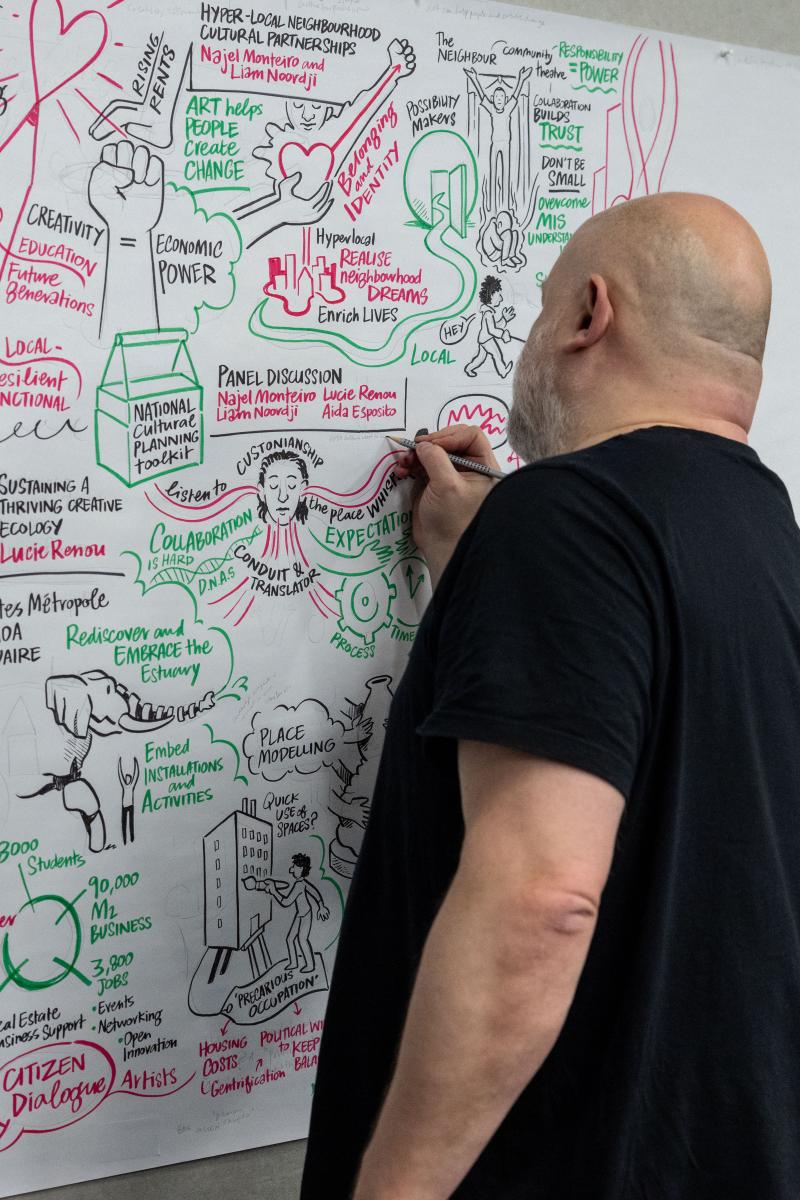 RISING
RENTS
HYPER-LOCAL NEIGHBOURHOOD
CULTURAL PARTNERSHIPS
Najel Monteiro and
Liam Noordji
ART helps
PEOPLE
Create
CHANGE
Belonging
and
IDENTITY
POSSIBILITY
Makers
The
NEIGHBOUR
community
theatre
RESPONSIBILITY
=POWER
COLLABORATION
BUILDS
TRUST
DON'T BE
SMALL
overcome
MIS
CREATIVITY
=
ECONOMIC
POWER
EDUCATION
Future
generations
Hyperlocal
REALISE
neighbourhood
DREAMS
Enrich LIVES
HEY
LOCAL
LOCAL-
NATIONAL
Cultural
PLANNING
toolkit
PANEL DISCUSSION
Najel Monteiro Lucie Renou
Liam Noordji Aida Esposito
SUSTAINING A
THRIVING CREATIVE
ECOLOGY
Lucie Renou
CUSTONIANSHIP
listen to
the place
COLLABORATION
IS HARD
D.N.A.S
CONDUIT &
TRANSLATOR
PROCESS
TIME
Métropole
Rediscover and
EMBRACE the
Estuary
Embed
INSTALLATIONS
and
ACTIVITIES
PLACE
MODELLING
QUICK
USE OF
SPACES?
"PRECARIOUS
OCCUPATION"
HOUSING
COSTS
Gentrification
POLITICAL
to KEEP
3000
Students
90,000
M2
BUSINESS
3,800
JOBS
Estate
Support
• Events
• Networking
• Open
Innovation
CITIZEN
Dialogue
Artists